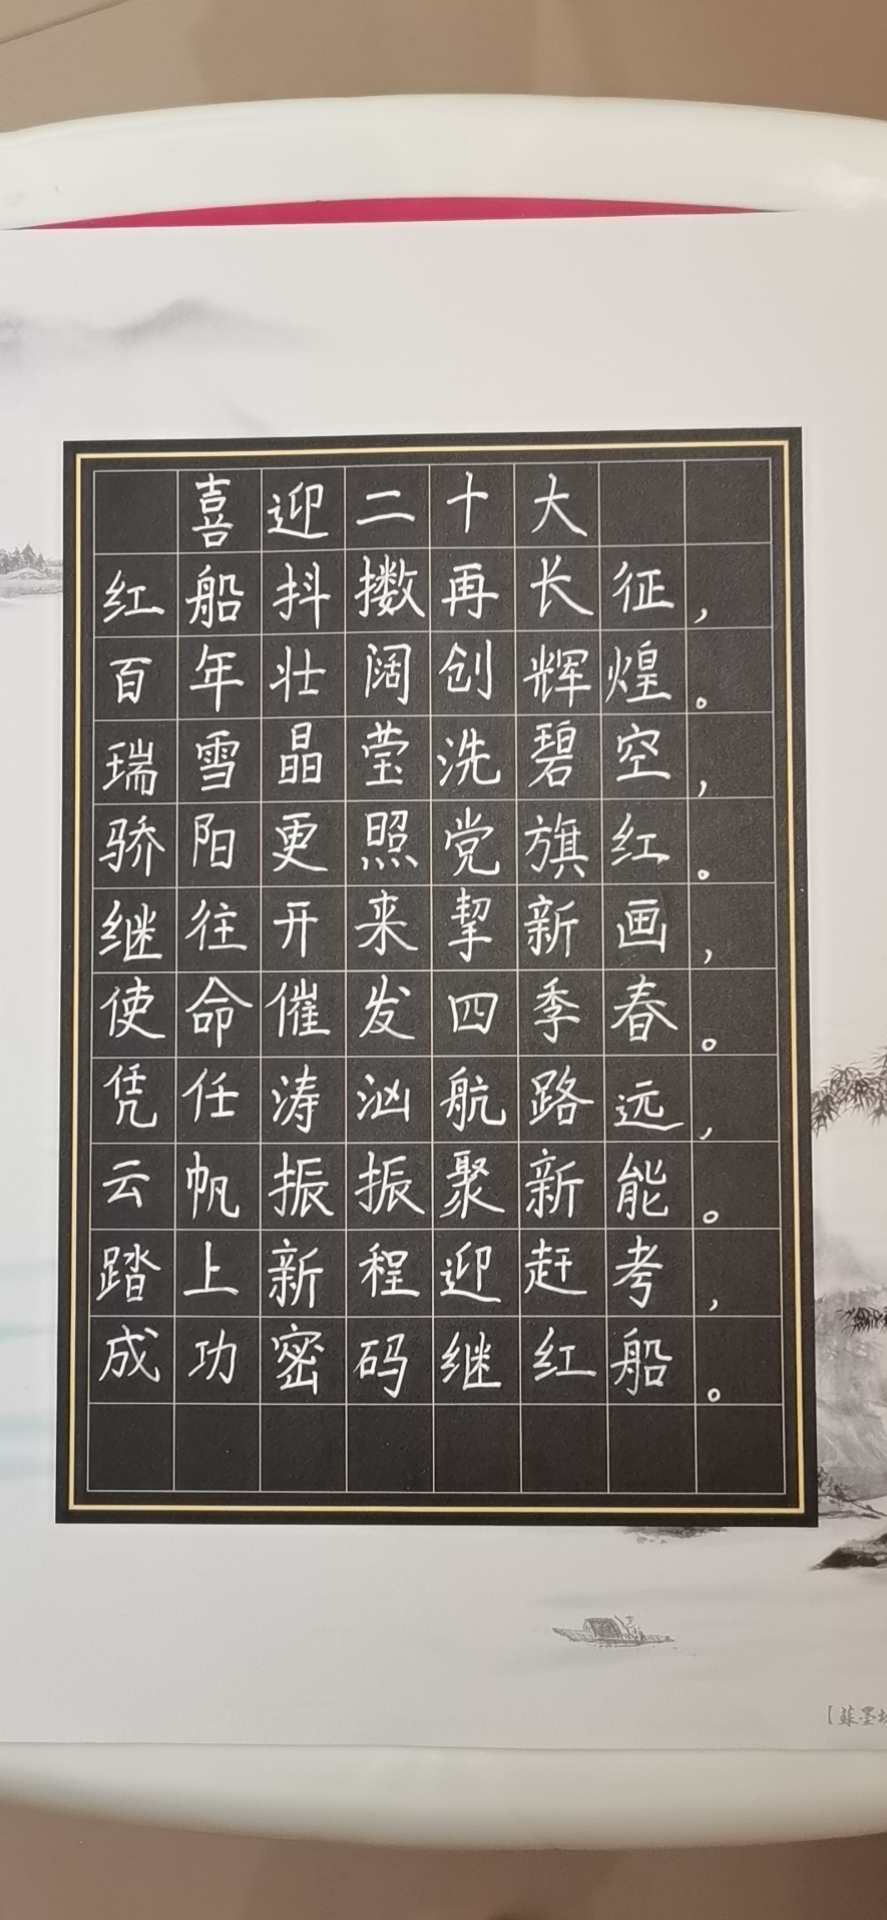 喜迎二十大
红船抖擞再长征，
百年壮阔创辉煌。
瑞雪晶莹洗碧空，
骄阳更照党旗红。
继往开来挈新画，
使命催发四季春。
凭任涛汹航路远，
云帆振振聚新能。
踏上新程迎赶考，
成功密码继红船。
【蘇墨